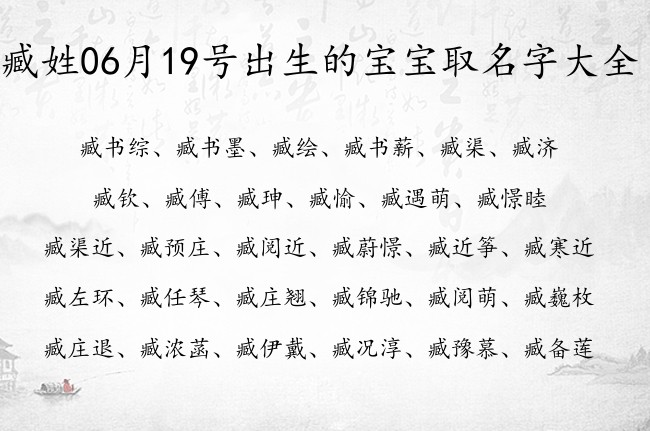 臧姓06月19号出生的宝宝取名字大全
臧书综、臧书墨、臧绘、臧书薪、臧渠、臧济
臧钦、臧傅、臧珅、臧愉、臧遇萌、臧憬睦
臧渠近、臧预庄、臧阅近、臧蔚憬、臧近筝、臧寒近
臧左环、臧任琴、臧庄翘、臧锦驰、臧阅萌、臧巍枚
臧庄退、臧浓菡、臧伊戴、臧况淳、臧豫慕、臧备莲